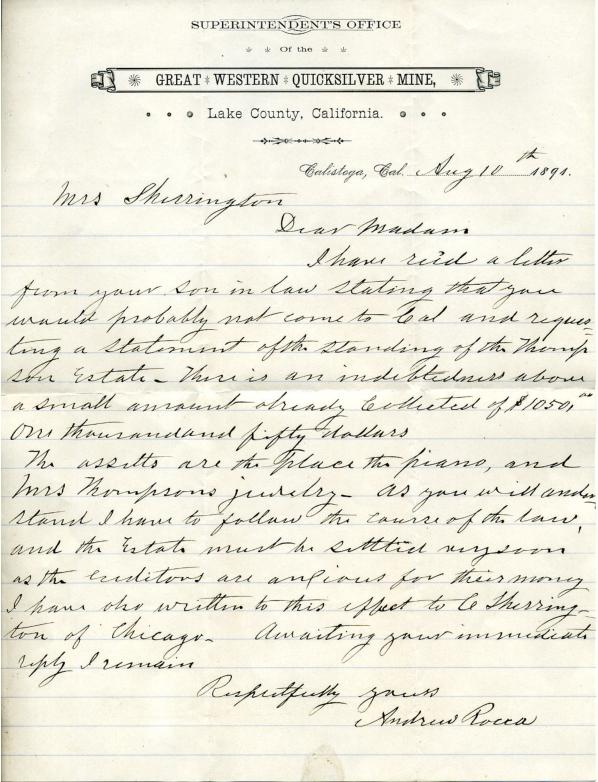 SUPERINTENDENT'S OFFICE
Of the
GREAT WESTERN QUICKSILVER MINE,
Lake County, California.
Calistoga, Cal. Aug 10th 1891.
Mrs Sherrington
Dear Madam
I have rec'd a letter
from your son in law stating that you
would probably not come to Cal and reques-
ting a statement of the standing of the Thomp
son Estate - There is an indebtedness above
a small amount already Collected of $1050.00
One thousand and fifty dollars
The assetts are the place the piano, and
Mrs Thompsons juelry - As you will under
stand I have to follow the course of the law,
and the Estate must be settled very soon
as the creditors are anxious for their money
I have also written to this effect to C Sherring-
ton of Chicago - Awaiting your immediate
reply I remain
Respectfully yours
Andrew Rocca